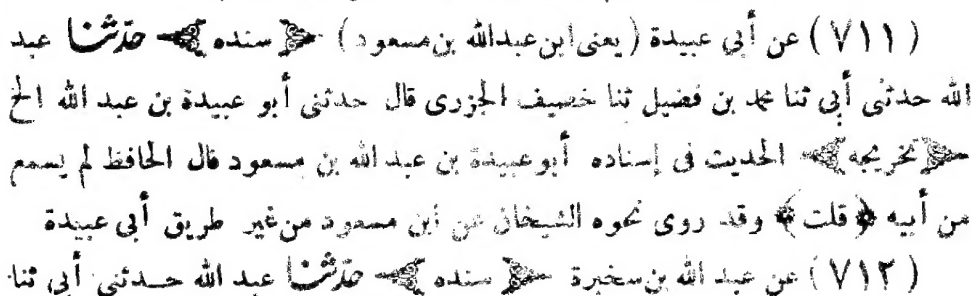 (٧١١) عن أبي عبيدة (يعنى ابن عبدالله بن مسعود) ﴿سنده﴾ حدّثنا عبد
الله حدثنى أبى ثنا محمد بن فضيل ثنا خصيف الجزرى قال حدثنى أبو عبيدة بن عبد الله الخ
﴿تخريجه﴾ الحديث فى إسناده أبو عبيدة بن عبد الله بن مسعود قال الحافظ لم يسمع
من أبيه ﴿قلت﴾ وقد روى نحوه الشيخان عن ابن مسعود من غير طريق أبى عبيدة
(٧١٢) عن عبد الله بن سخبرة ﴿سنده﴾ حدّثنا عبد الله حدثنى أبى ثنا